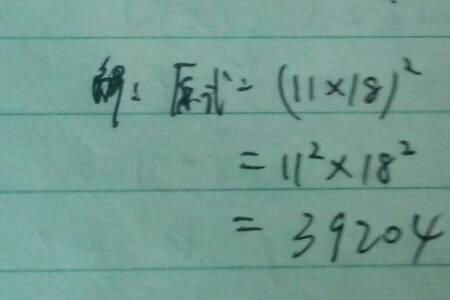 解：原式=(11×18)²
=11²×18²
=39204